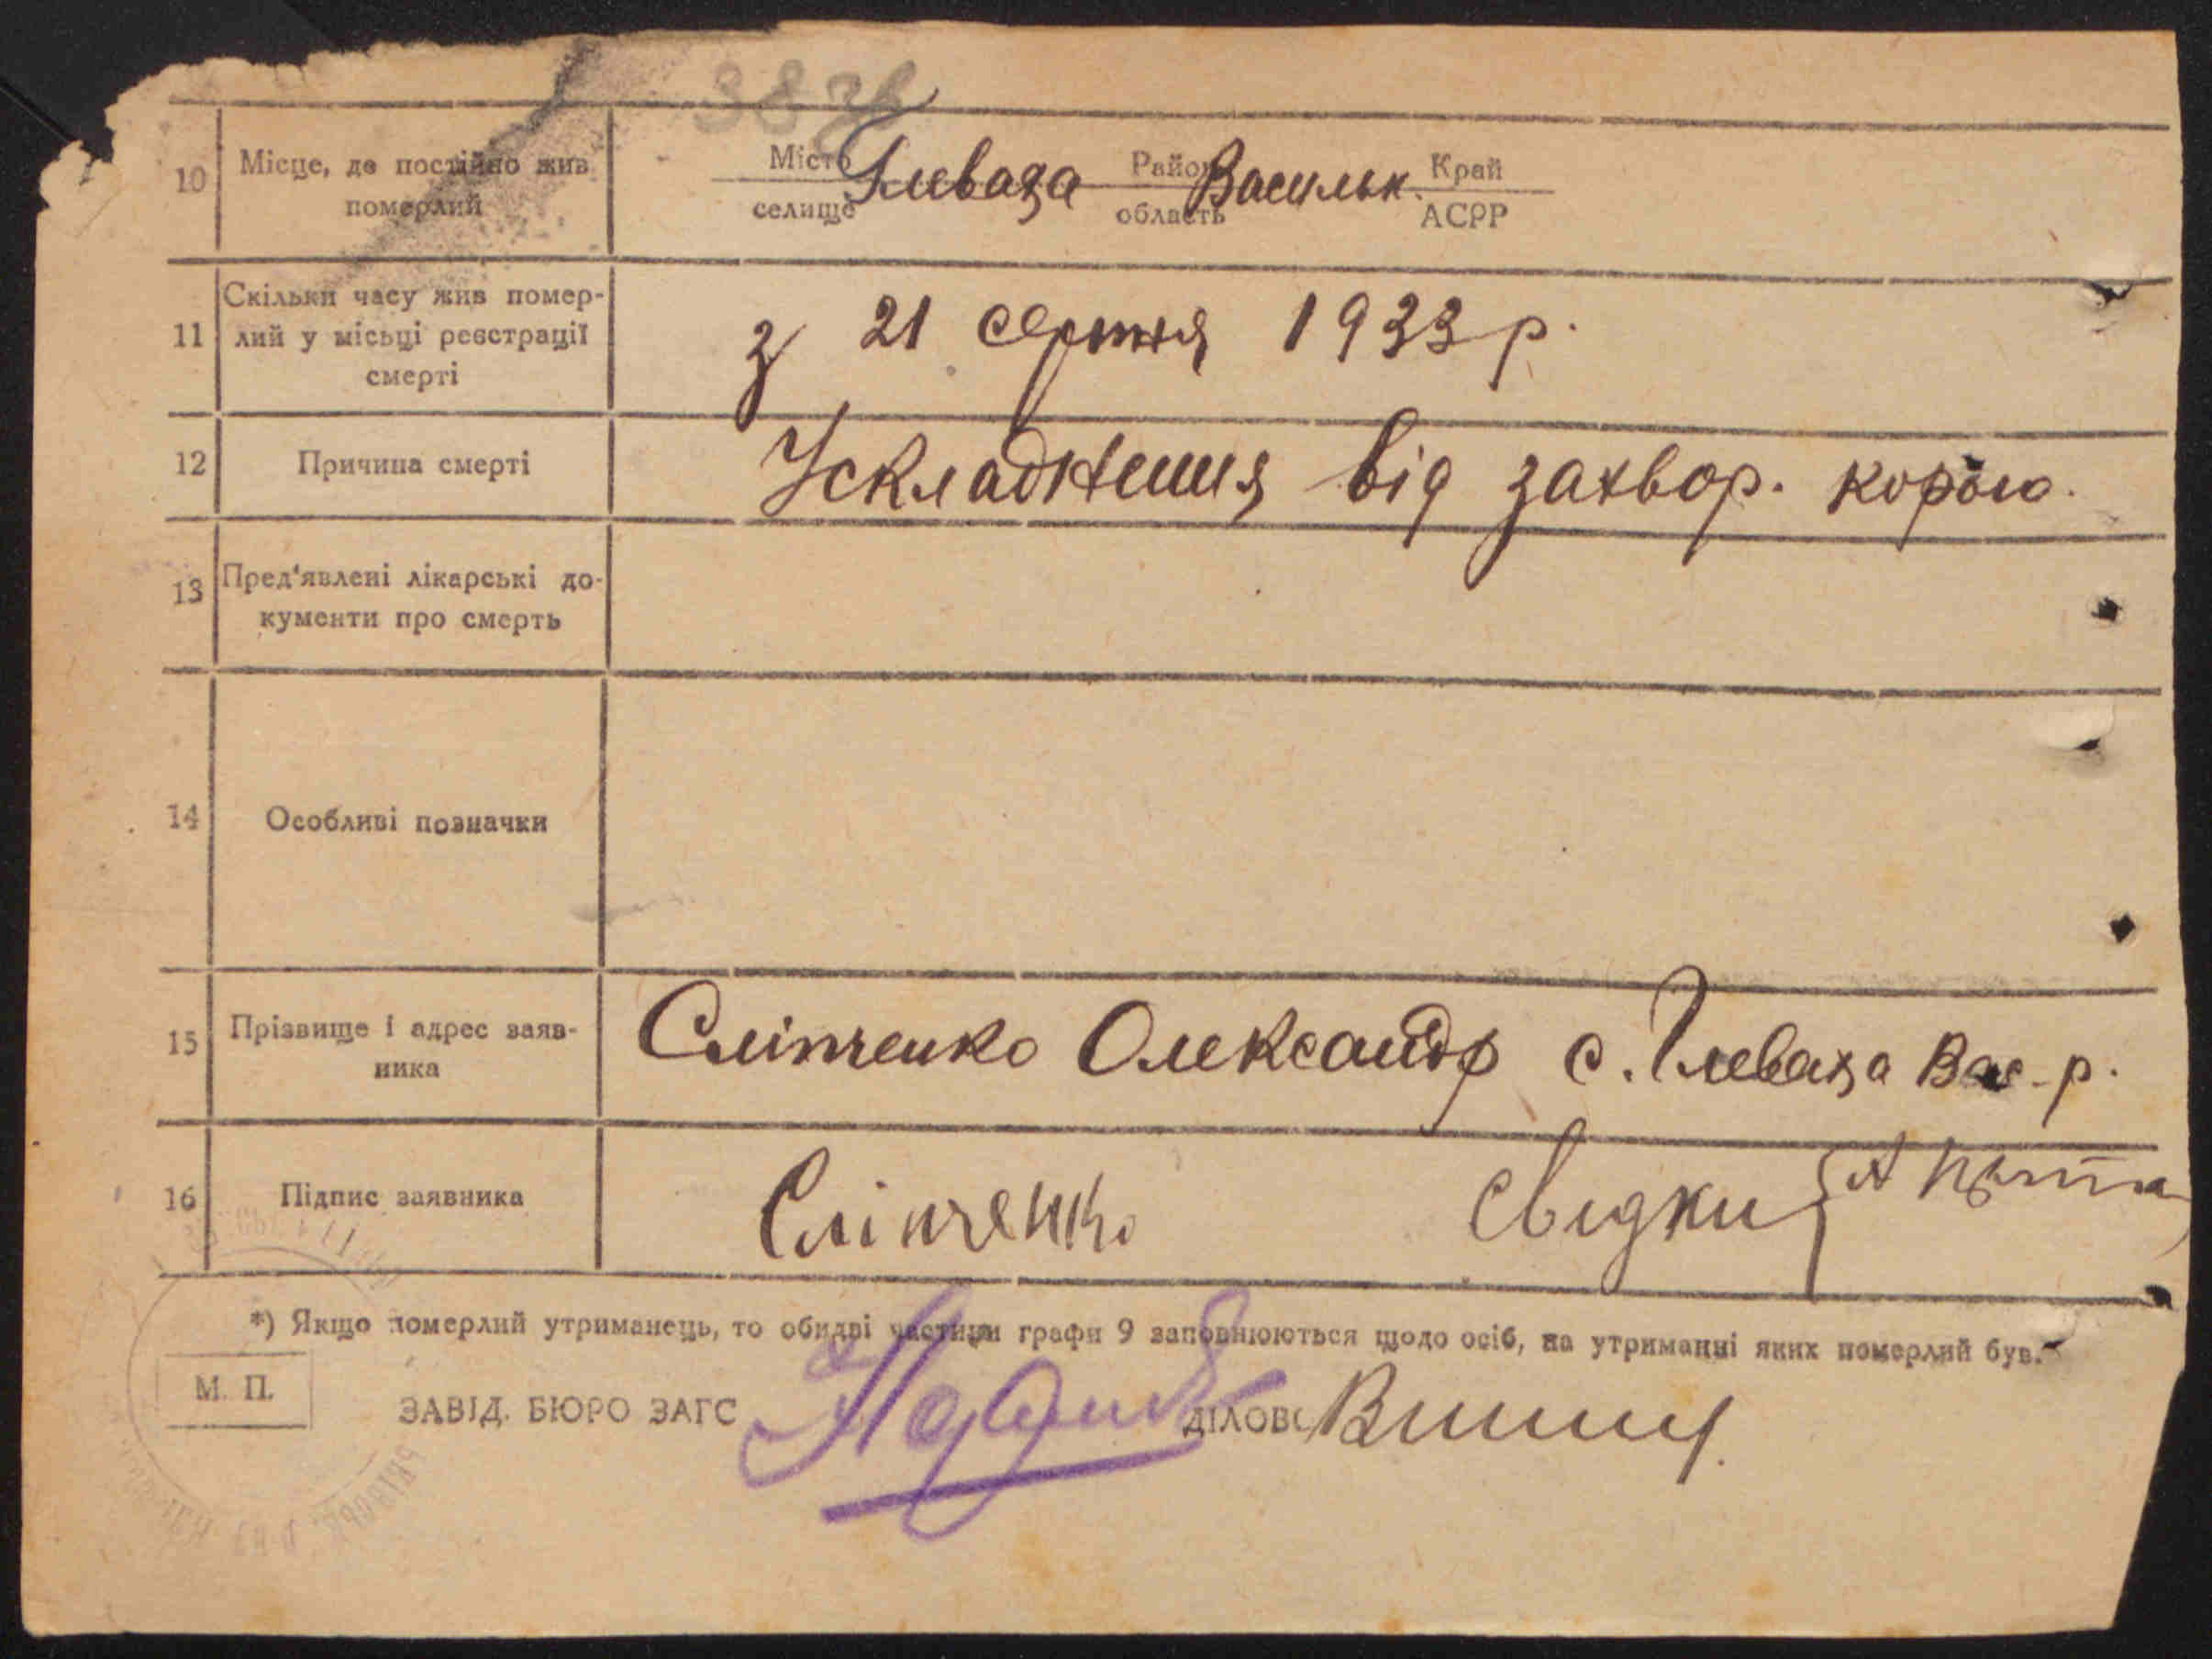 38 зв
10 Місце, де постійно жив Місто Глеваха Район Васильк. Край
померлий селище область АСРР
Скільки часу жив помер-
11 лий у місьці реєстрації з 21 серпня 1933 р.
смерті
12 Причина смерті Ускладнення від захвор. корью.
13 Пред'явлені лікарські до-
кументи про смерть
14 Особливі позначки
15 Прізвище і адрес заяв- Сліпченко Олександр с. Глеваха Вас-р.
ника
16 Підпис заявника Сліпченко Свідки А
*) Якщо померлий утриманець, то обидві частини графи 9 заповнюються щодо осіб, на утриманні яких померлий був.
М. П.
ЗАВІД. БЮРО ЗАГС ДІЛОВ